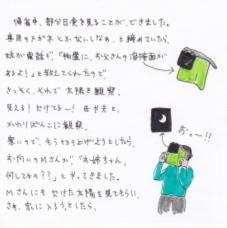 帰省中、部分日食を見ることができました。
専用のメガネとかないしなぁ、と諦めていたら
妹が電話で、「物置に、お父さんの溶接面が
あるよ!」と教えてくれたので
さっそく、それで太陽を観察。
見える!欠けてるー!母や夫と、
かわりばんこに観察。
寒いので、もう切り上げようとしたら、
お向いのMさんが、「お姉ちゃん、
何してるの??」とやってきました。
Mさんにも欠けた太陽を見てもらい、
さあ、家に入ろうとしたら、
おぉー!!